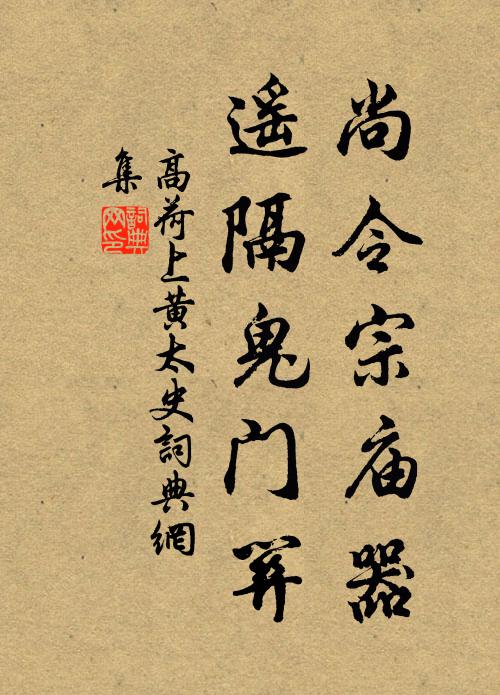 尚令宗庙器
遥隔鬼门关
高荷上黄太史詞典網
集
詞典网印